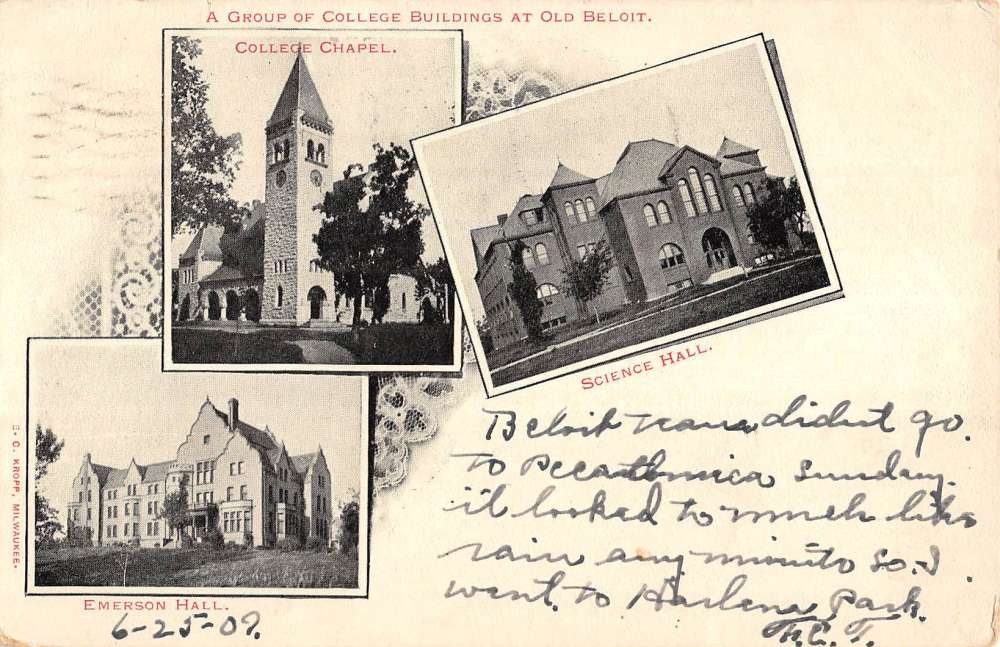 A GROUP OF COLLEGE BUILDINGS AT OLD BELOIT.
COLLEGE CHAPEL.
SCIENCE HALL.
E. C. KROPP, MILWAUKEE.
EMERSON HALL.
6-25-07.
Beloit didnt go.
to Pecatonica Sunday.
it looked to much like
rain any minuto So. I
went. to Harlem Park.
F.C.T.